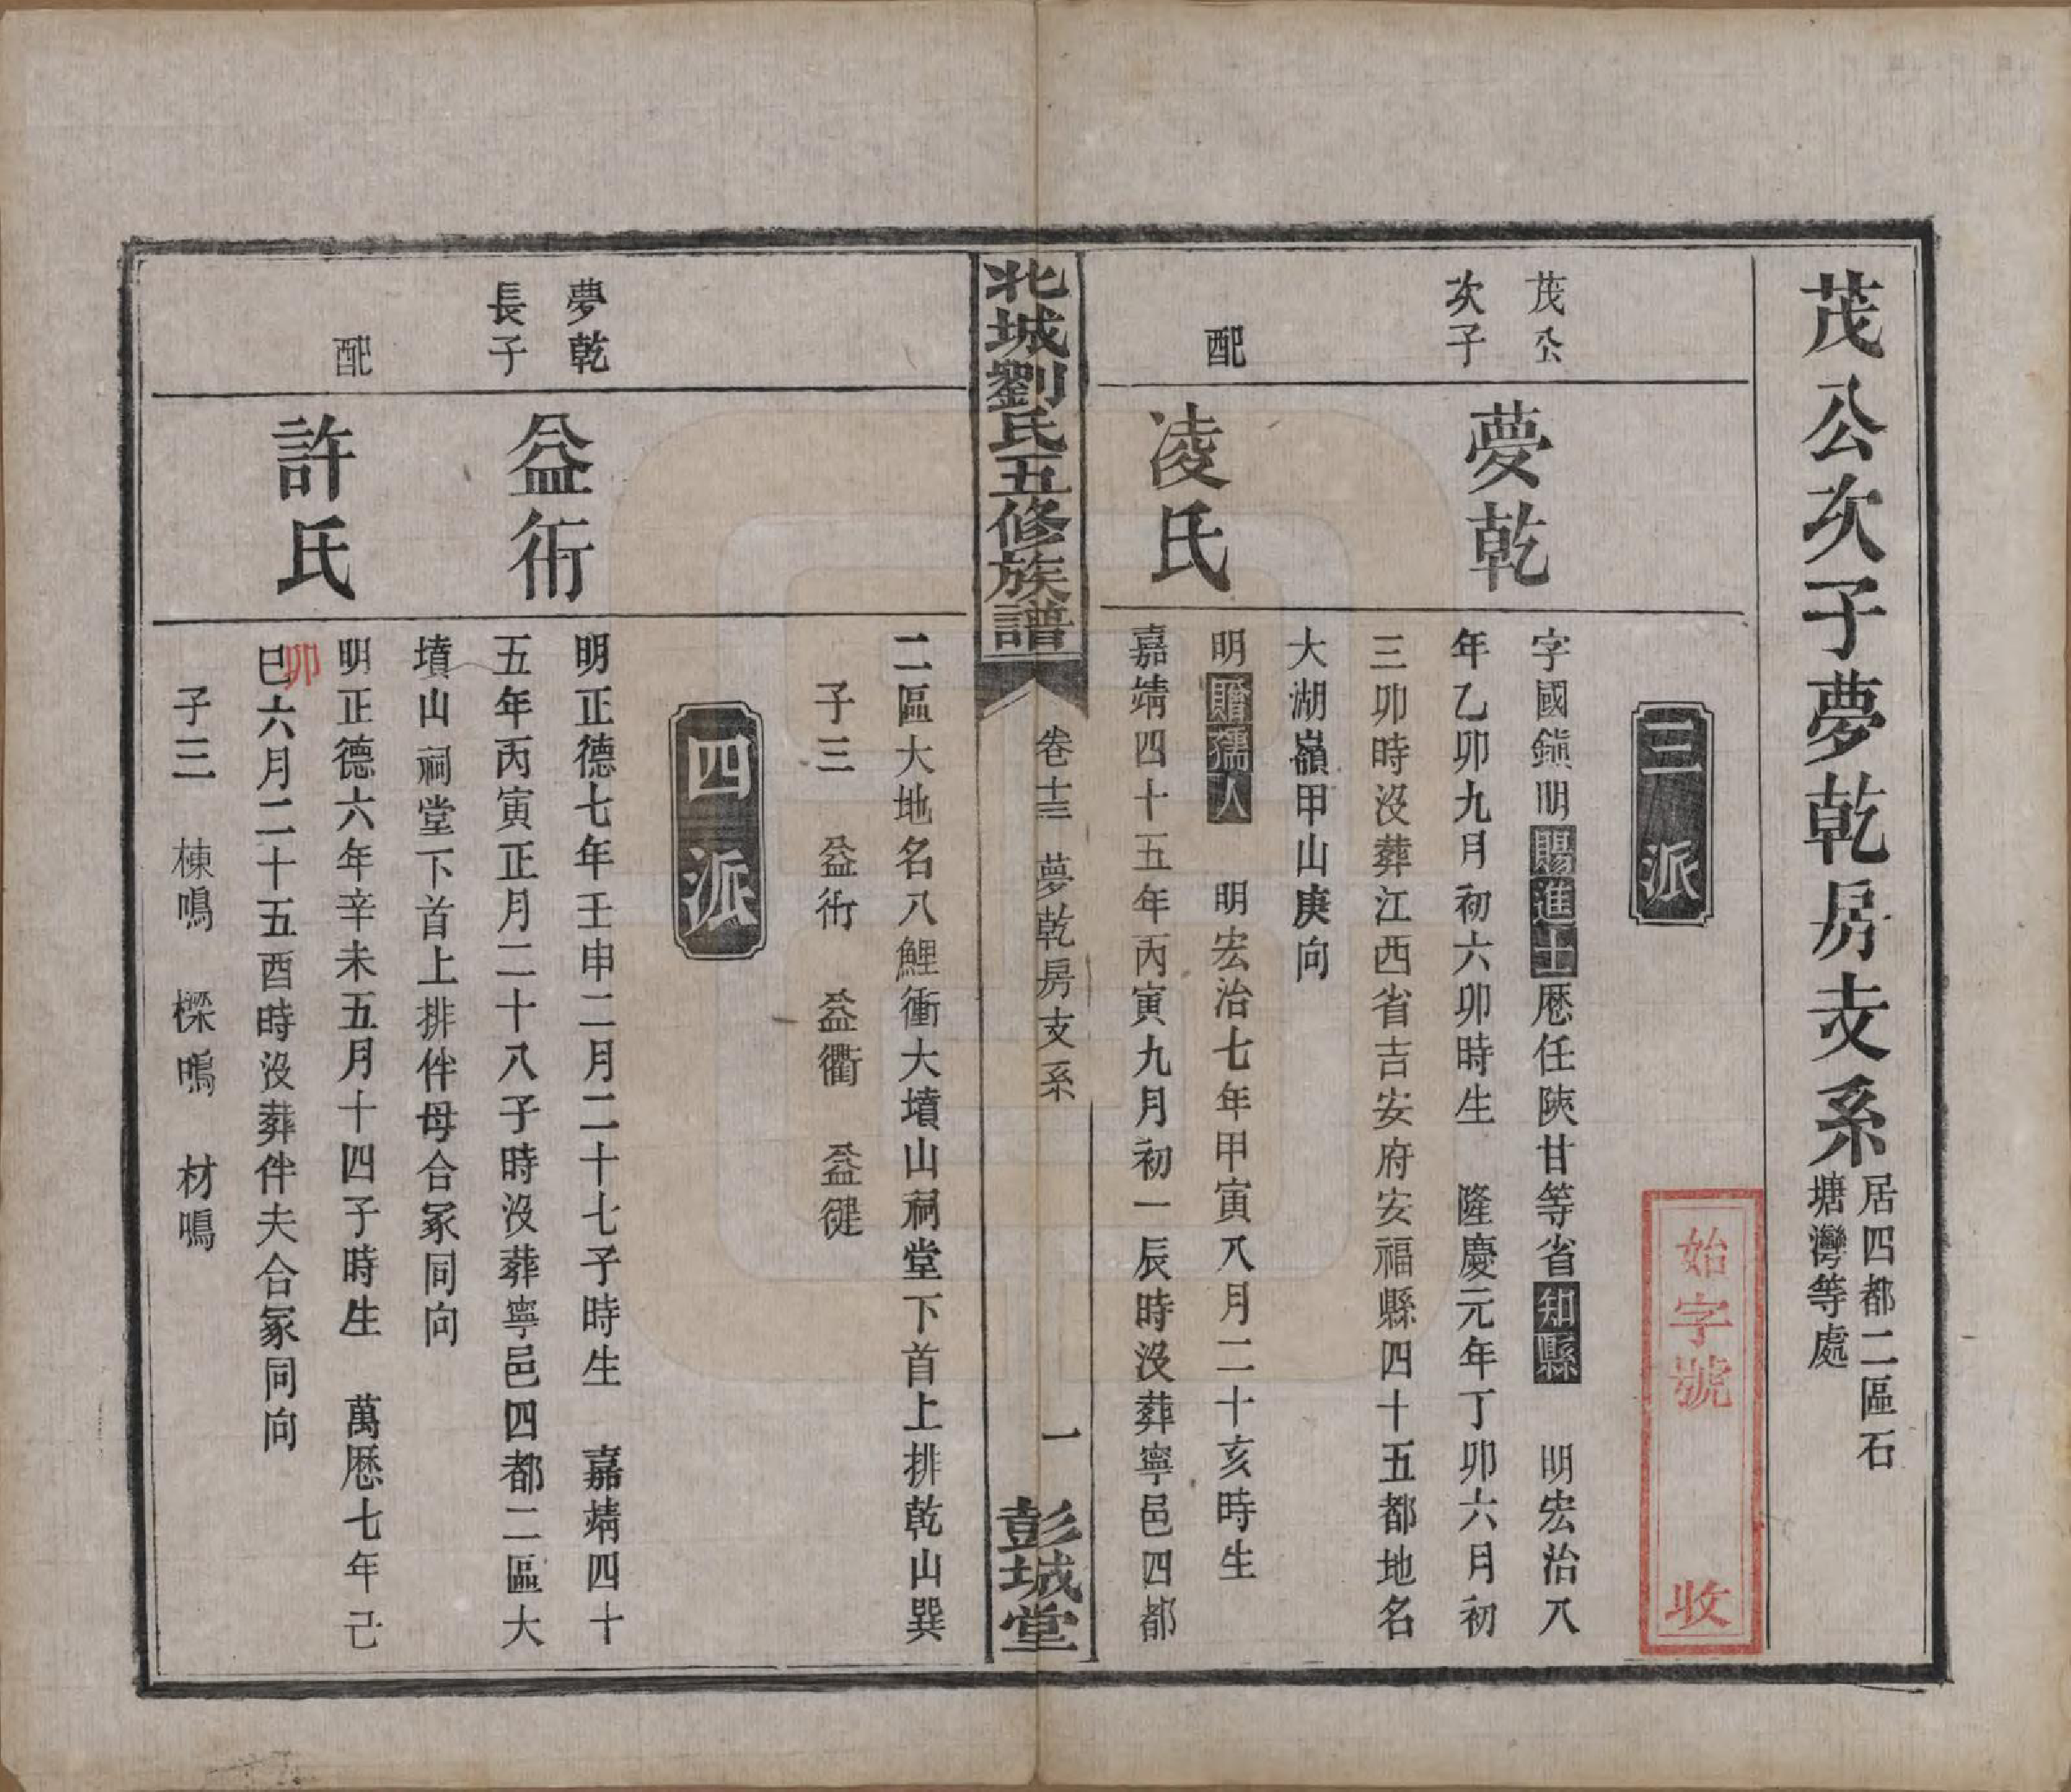 茂公次子夢乾房支系
居四都二區石
塘灣等處
始字號 收
三派
茂公
次子
夢乾
字國鎭明賜進士厯任陝甘等省知縣 明宏治八
年乙卯九月初六卯時生 隆慶元年丁卯六月初
三卯時沒葬江西省吉安府安福縣四十五都地名
大湖嶺甲山庚向
配
凌氏
明贈孺人 明宏治七年甲寅八月二十亥時生
嘉靖四十五年丙寅九月初一辰時沒葬寧邑四都
北城劉氏五修族譜
卷十三 夢乾房支系
一
彭城堂
二區大地名八鯉衝大墳山祠堂下首上排乾山巽
子三 益術 益衢 益衟
四派
夢乾
長子
益術
明正德七年壬申二月二十七子時生 嘉靖四十
五年丙寅正月二十八子時沒葬寧邑四都二區大
墳山祠堂下首上排伴母合冢同向
配
許氏
明正德六年辛未五月十四子時生 萬厯七年己
巳六月二十五酉時沒葬伴夫合冢同向
卯
子三 棟鳴 樑鳴 材鳴